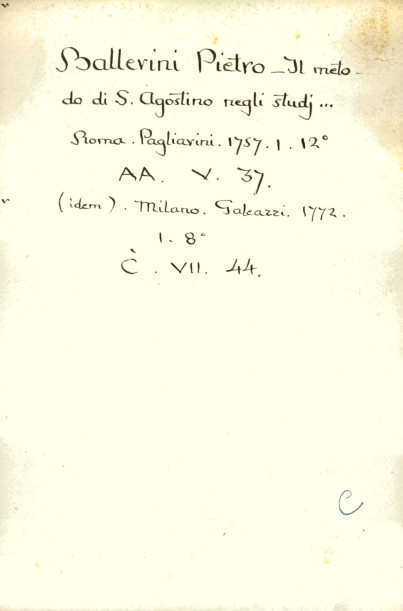 Ballerini Pietro _ Il meto-
do di S. Agostino negli studj ...
Roma. Pagliarini. 1757. 1. 12°
AA. V. 37.
(idem). Milano. Galeazzi. 1772.
1. 8°
C̀. VII. 44.
C